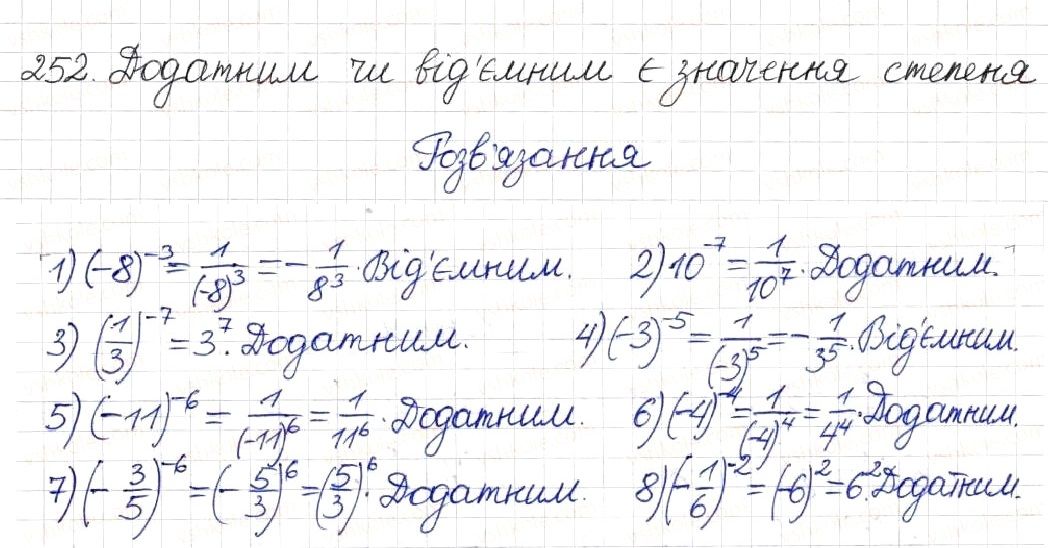 252. Додатним чи від'ємним є значення степеня
Розв'язання
1) (-8)^{-3} = \frac{1}{(-8)^3} = -\frac{1}{8^3}. Від'ємним. 2) 10^{-7} = \frac{1}{10^7}. Додатним.
3) (\frac{1}{3})^{-7} = 3^7. Додатним. 4) (-3)^{-5} = \frac{1}{(-3)^5} = -\frac{1}{3^5}. Від'ємним.
5) (-11)^{-6} = \frac{1}{(-11)^6} = \frac{1}{11^6}. Додатним. 6) (-4)^{-4} = \frac{1}{(-4)^4} = \frac{1}{4^4}. Додатним.
7) (-\frac{3}{5})^{-6} = (-\frac{5}{3})^6 = (\frac{5}{3})^6. Додатним. 8) (-\frac{1}{6})^{-2} = (-6)^2 = 6^2. Додатним.